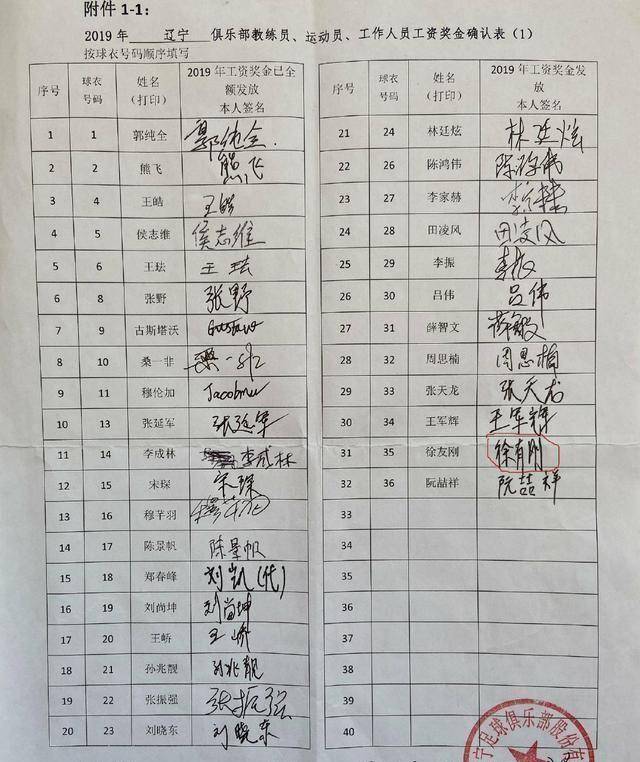 附件 1-1:
2019 年 辽宁 俱乐部教练员、运动员、工作人员工资奖金确认表（1）
按球衣号码顺序填写
序号 球衣号码 姓名（打印） 2019 年工资奖金已全额发放 本人签名
1 1 郭纯全 郭纯全.
2 2 熊飞 熊飞
3 4 王皓 王皓
4 5 侯志维 侯志维
5 6 王珐 王珐
6 8 张野 张野
7 9 古斯塔沃 Gustavo
8 10 桑一非 桑一非
9 11 穆伦加 Jacobmu
10 13 张延军 张延军
11 14 李成林 李成林
12 15 宋琛 宋琛
13 16 穆芊羽
14 17 陈景帆 陈景帆
15 18 郑春峰 刘凯(代)
16 19 刘尚坤 刘尚坤
17 20 王峤 王峤
18 21 孙兆靓 孙兆靓
19 22 张振强 张振强
20 23 刘晓东 刘晓东
序号 球衣号码 姓名（打印） 2019 年工资奖金发放 本人签名
21 24 林廷炫 林廷炫
22 26 陈鸿伟 陈鸿伟
23 27 李家赫
24 28 田凌风 田凌风
25 29 李振 李振
26 30 吕伟 吕伟
27 31 薛智文
28 32 周思楠 周思楠
29 33 张天龙 张天龙
30 34 王军辉 王军辉
31 35 徐友刚 徐有刚
32 36 阮喆祥 阮喆祥
33
34
35
36
37
38
39
40
宁足球俱乐部股份有